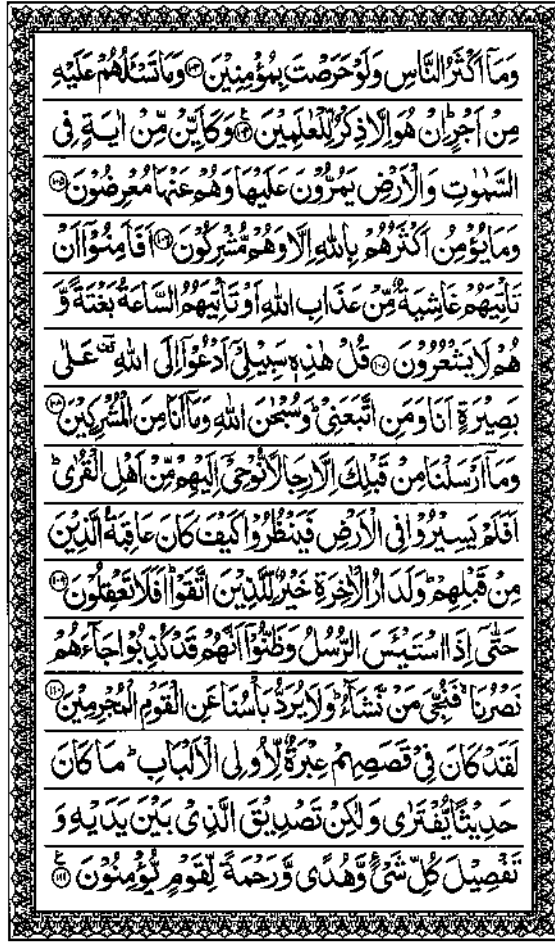 وَمَآ اَكْثَرُ النَّاسِ وَلَوْ حَرَصْتَ بِمُؤْمِنِيْنَ ﴿۱۰۳﴾ وَمَا تَسْـَٔلُهُمْ عَلَيْهِ
مِنْ اَجْرٍ ؕ اِنْ هُوَ اِلَّا ذِكْرٌ لِّلْعٰلَمِيْنَ ﴿۱۰۴﴾ ع وَكَاَيِّنْ مِّنْ اٰيَةٍ فِى
السَّمٰوٰتِ وَالْاَرْضِ يَمُرُّوْنَ عَلَيْهَا وَهُمْ عَنْهَا مُعْرِضُوْنَ ﴿۱۰۵﴾
وَمَا يُؤْمِنُ اَكْثَرُهُمْ بِاللّٰهِ اِلَّا وَهُمْ مُّشْرِكُوْنَ ﴿۱۰۶﴾ اَفَاَمِنُوْۤا اَنْ
تَاْتِيَهُمْ غَاشِيَةٌ مِّنْ عَذَابِ اللّٰهِ اَوْ تَاْتِيَهُمُ السَّاعَةُ بَغْتَةً وَّ
هُمْ لَا يَشْعُرُوْنَ ﴿۱۰۷﴾ قُلْ هٰذِهٖ سَبِيْلِىْۤ اَدْعُوْۤا اِلَى اللّٰهِ ؔ عَلٰى
بَصِيْرَةٍ اَنَا وَمَنِ اتَّبَعَنِىْ ؕ وَسُبْحٰنَ اللّٰهِ وَمَآ اَنَا مِنَ الْمُشْرِكِيْنَ ﴿۱۰۸﴾
وَمَآ اَرْسَلْنَا مِنْ قَبْلِكَ اِلَّا رِجَالًا نُّوْحِىْۤ اِلَيْهِمْ مِّنْ اَهْلِ الْقُرٰى ؕ
اَفَلَمْ يَسِيْرُوْا فِى الْاَرْضِ فَيَنْظُرُوْا كَيْفَ كَانَ عَاقِبَةُ الَّذِيْنَ
مِنْ قَبْلِهِمْ ؕ وَلَدَارُ الْاٰخِرَةِ خَيْرٌ لِّلَّذِيْنَ اتَّقَوْا ؕ اَفَلَا تَعْقِلُوْنَ ﴿۱۰۹﴾
حَتّٰۤى اِذَا اسْتَيْـَٔسَ الرُّسُلُ وَظَنُّوْۤا اَنَّهُمْ قَدْ كُذِبُوْا جَآءَهُمْ
نَصْرُنَا ۙ فَنُجِّىَ مَنْ نَّشَآءُ ؕ وَلَا يُرَدُّ بَاْسُنَا عَنِ الْقَوْمِ الْمُجْرِمِيْنَ ﴿۱۱۰﴾
لَقَدْ كَانَ فِىْ قَصَصِهِمْ عِبْرَةٌ لِّاُولِى الْاَلْبَابِ ؕ مَا كَانَ
حَدِيْثًا يُّفْتَرٰى وَلٰكِنْ تَصْدِيْقَ الَّذِىْ بَيْنَ يَدَيْهِ وَ
تَفْصِيْلَ كُلِّ شَىْءٍ وَّهُدًى وَّرَحْمَةً لِّقَوْمٍ يُّؤْمِنُوْنَ ﴿۱۱۱﴾ ع